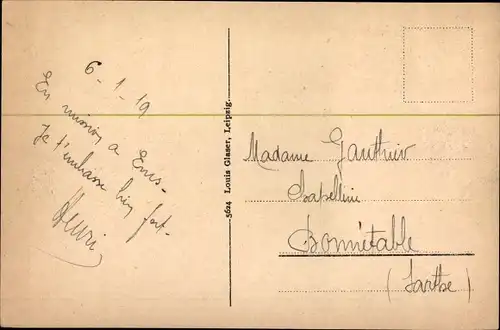 6-1-19
En mission a Ems-
Je t'embrasse bien fort-
Henri
5624 Louis Glaser, Leipzig.
Madame Gauthier
Bonnétable
(Sarthe)